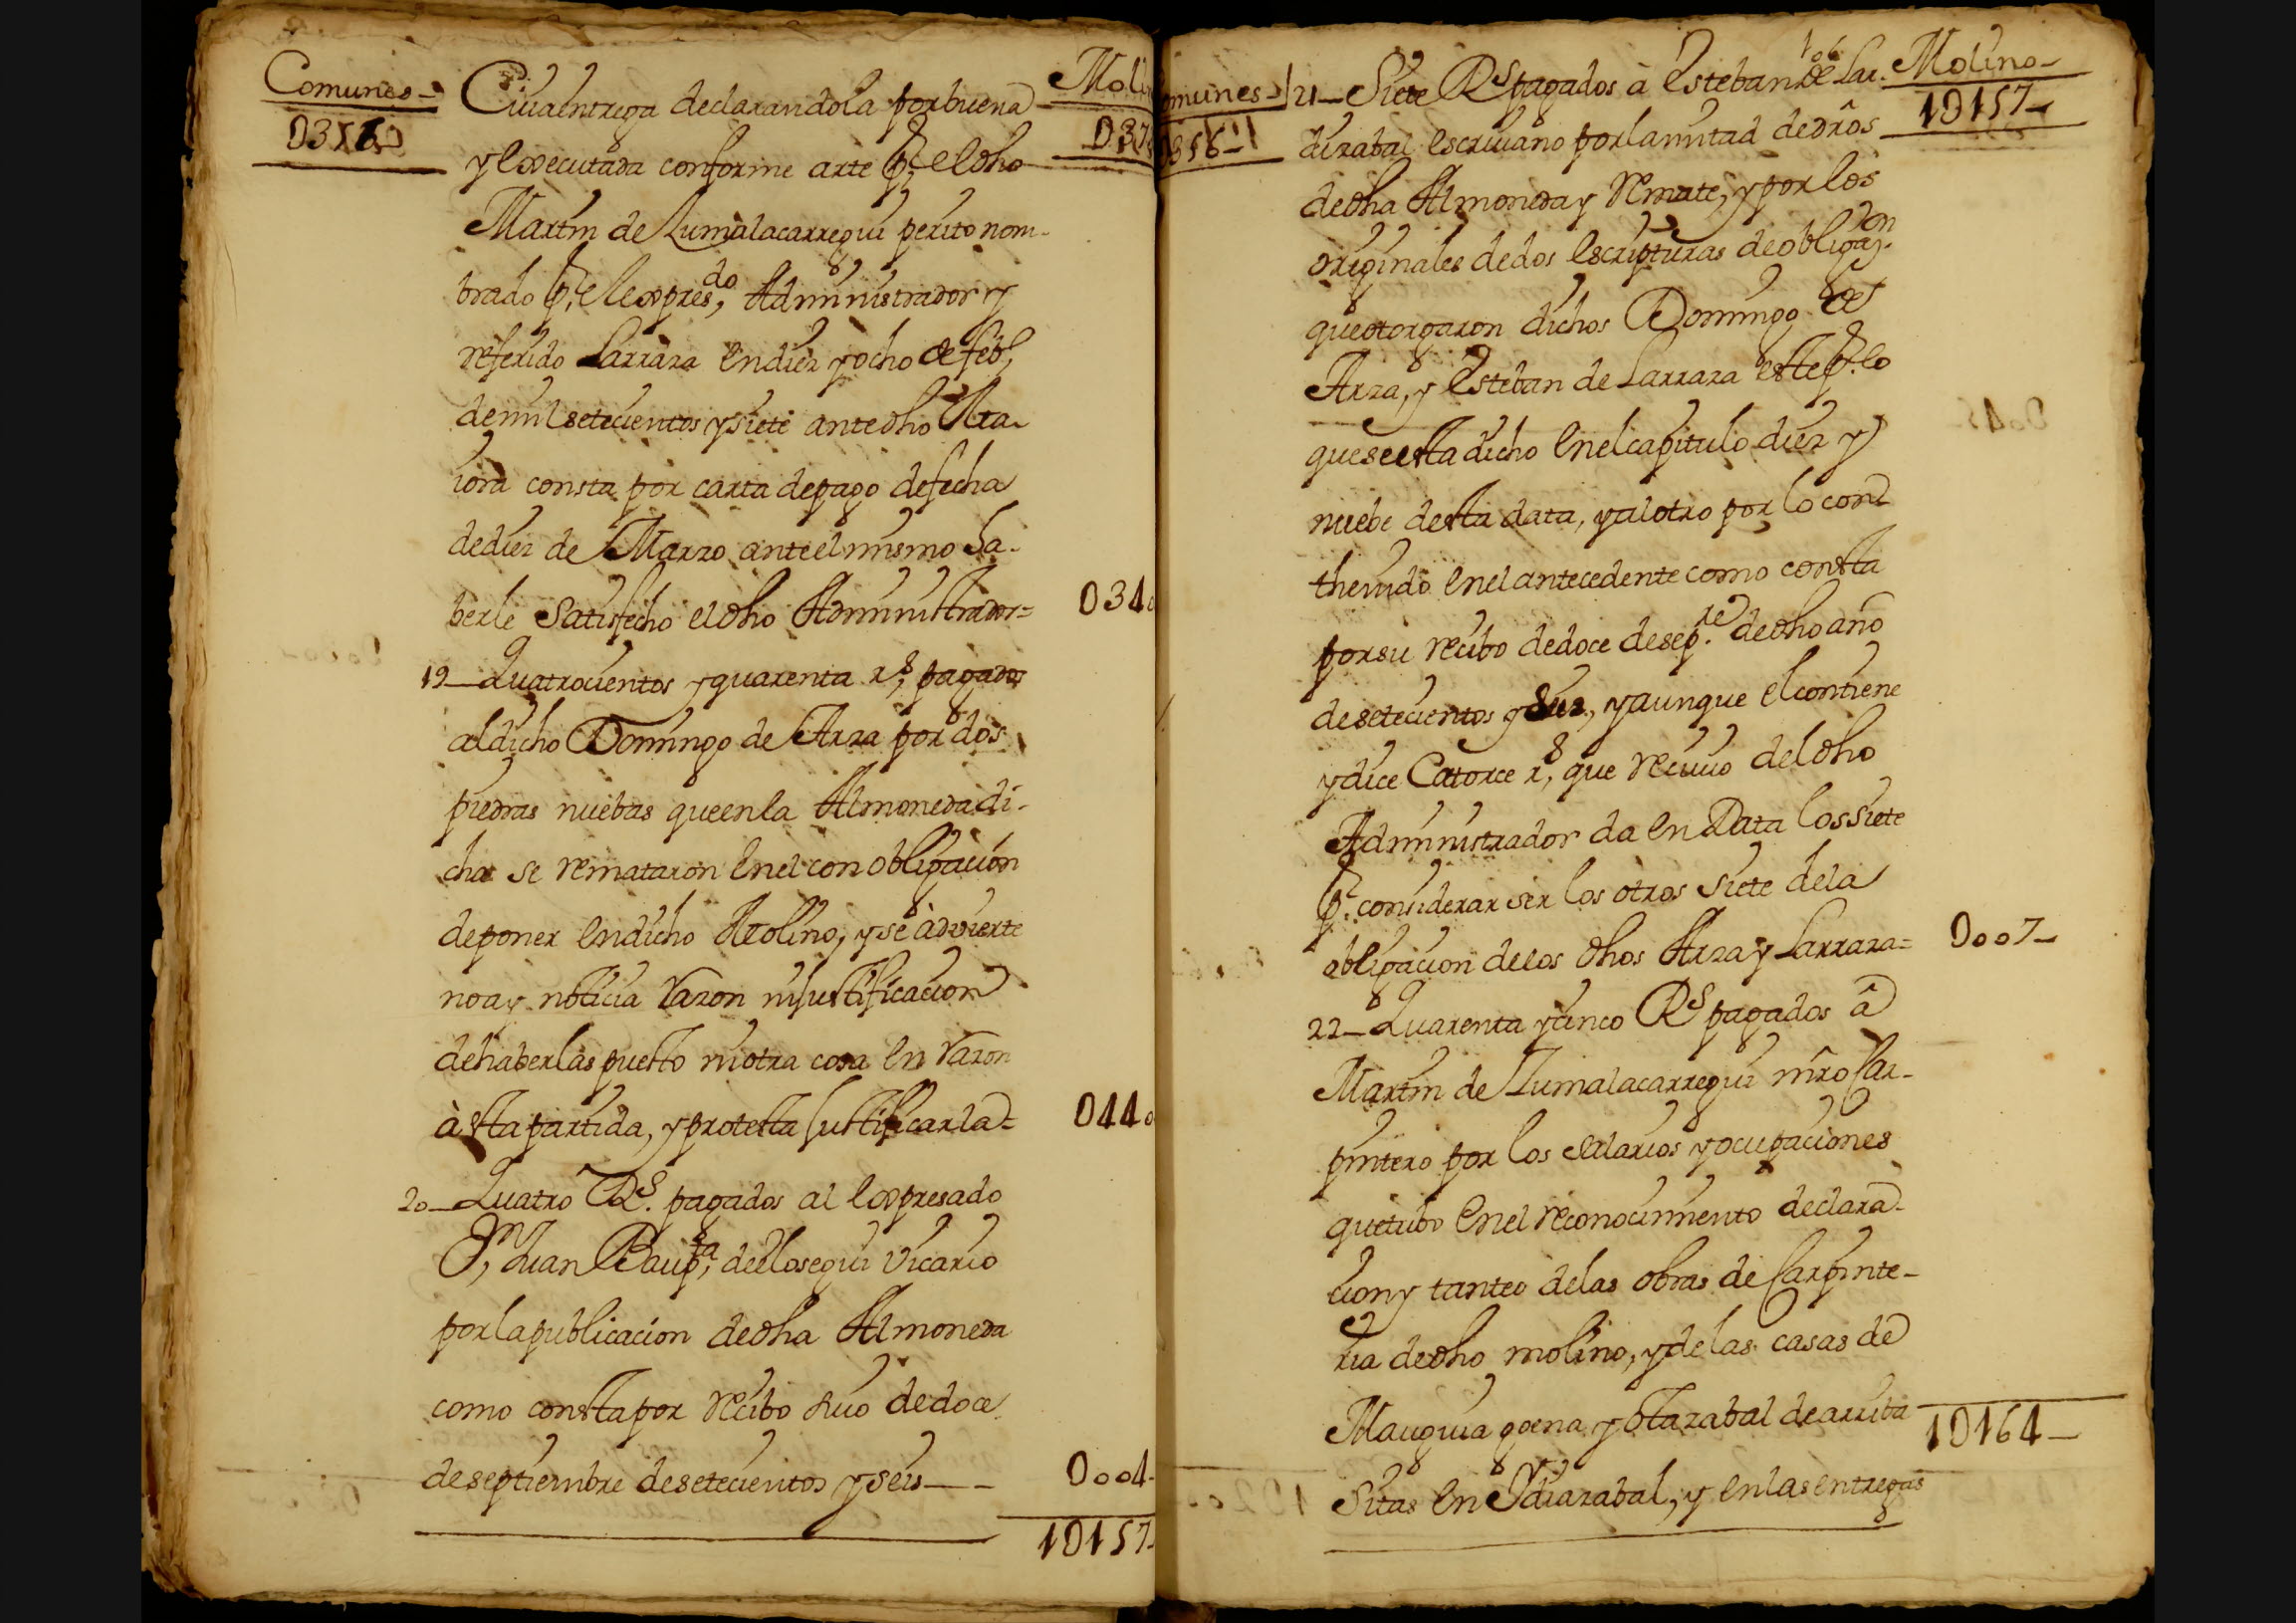 Comunes
Molin
Cuia entrega declarandola por buena
y Executada conforme arte pr. el dho
Martin de Zumalacarregui perito nom-
brado pr. el expresdo, Administrador y
referido Larraza en diez y ocho de febo,
de mil setecientos y siete ante dho
consta por carta de pago de fecha
de diez de Marzo ante el mismo ha-
berle satisfecho el dho Administrador= 0340
19_ Quatrocientos y quarenta rs, pagados
al dicho Domingo de Arza por dos
piedras nuebas que en la Almoneda di-
cha se remataron en el con obligacion
de poner en dicho Molino, y se advierte
no ay noticia razon ni justificacion
de haberlas puesto ni otra cosa en razon
à esta partida, y protesta justificarla= 0440
20_ Quatro Rs. pagados al expresado
Dn, Juan Baupta, de Elosegui Vicario
por la publicacion de dha Almoneda
como consta por recibo suio de doce
de septiembre de setecientos y seis 0004-
10157-
106
omunes
Molino
0356
10157
21_ Siete Rs pagados à Esteban de Lar-
dizabal escriuano por la mitad de drôs
de dha Almoneda y remate, y por los
originales de dos escripturas de obligaon.
que otorgaron dichos Domingo de
Arza, y Esteban de Larraza este pr. lo
que se esta dicho en el capitulo diez y
nuebe desta data, y al otro por lo con
thenido en el antecedente como consta
por su recibo de doce de sepre. de dho año
de setecientos y seis, y aunque el contiene
y dice Catorce rs, que reciuio del dho
Administrador da en Data los siete
pr. considerar ser los otros siete de la
obligacion de los dhos Arza y Larraza= 0007_
22_ Quarenta y cinco Rs pagados â
Martin de Zumalacarregui mr̂o Car-
pintero por los salarios y ocupaciones
que tubo en el reconocimiento declara-
cion y tanteo de las obras de Carpinte-
ria de dho molino, y de las casas de
Mauguia goena y Olazabal de arriba
10164_
Sitas en Ydiazabal, y en las entregas